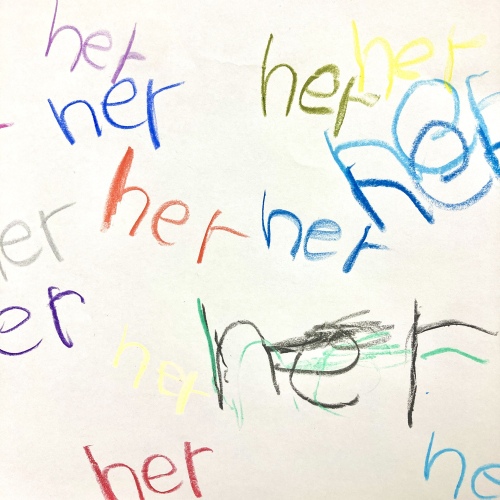 her
her
her
her
her
her
her
er
er
her
her
her
he